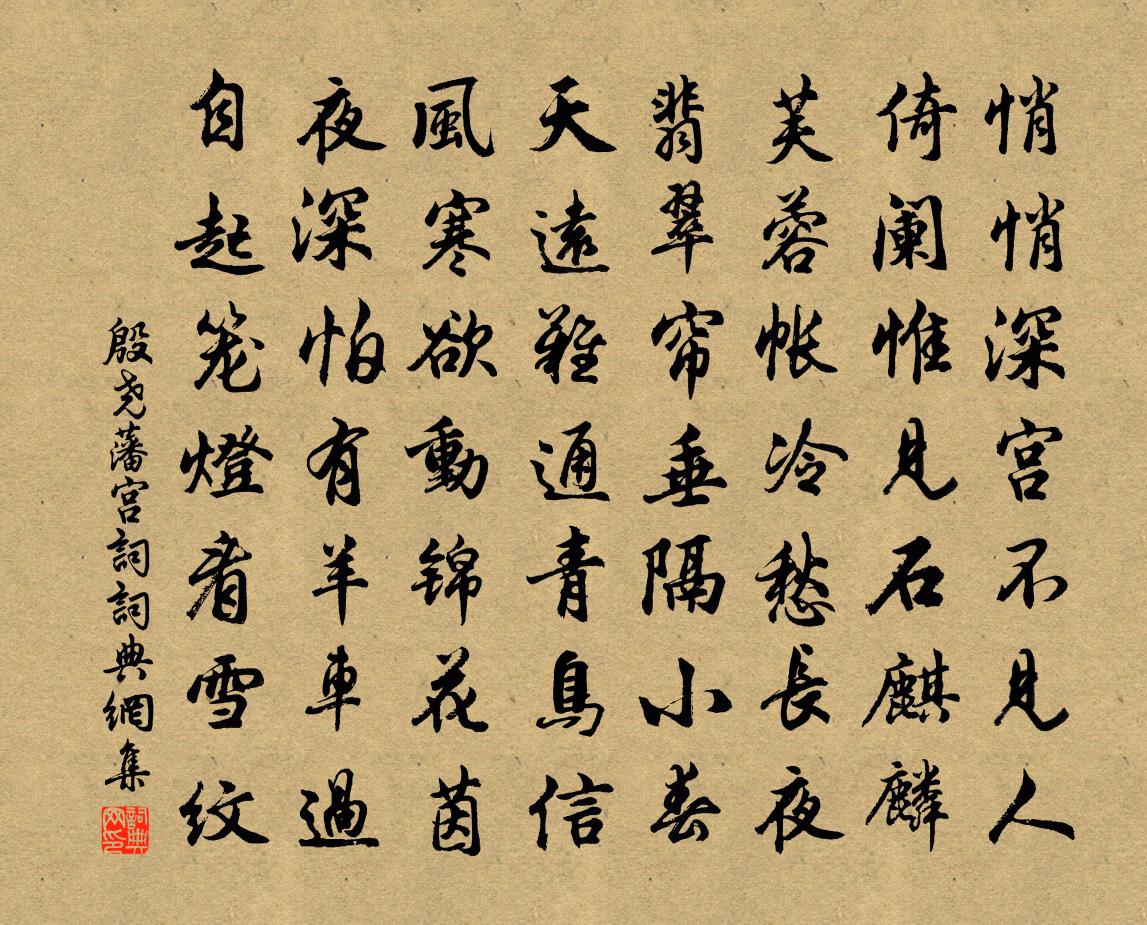 悄悄深宫不見人
倚阑惟見石麒麟
芙蓉帐冷愁長夜
翡翠帘垂隔小春
天遠難通青鳥信
風寒欲動锦花茵
夜深怕有羊車過
自起笼燈看雪纹
殷尧藩宫詞詞典網集
詞典网印